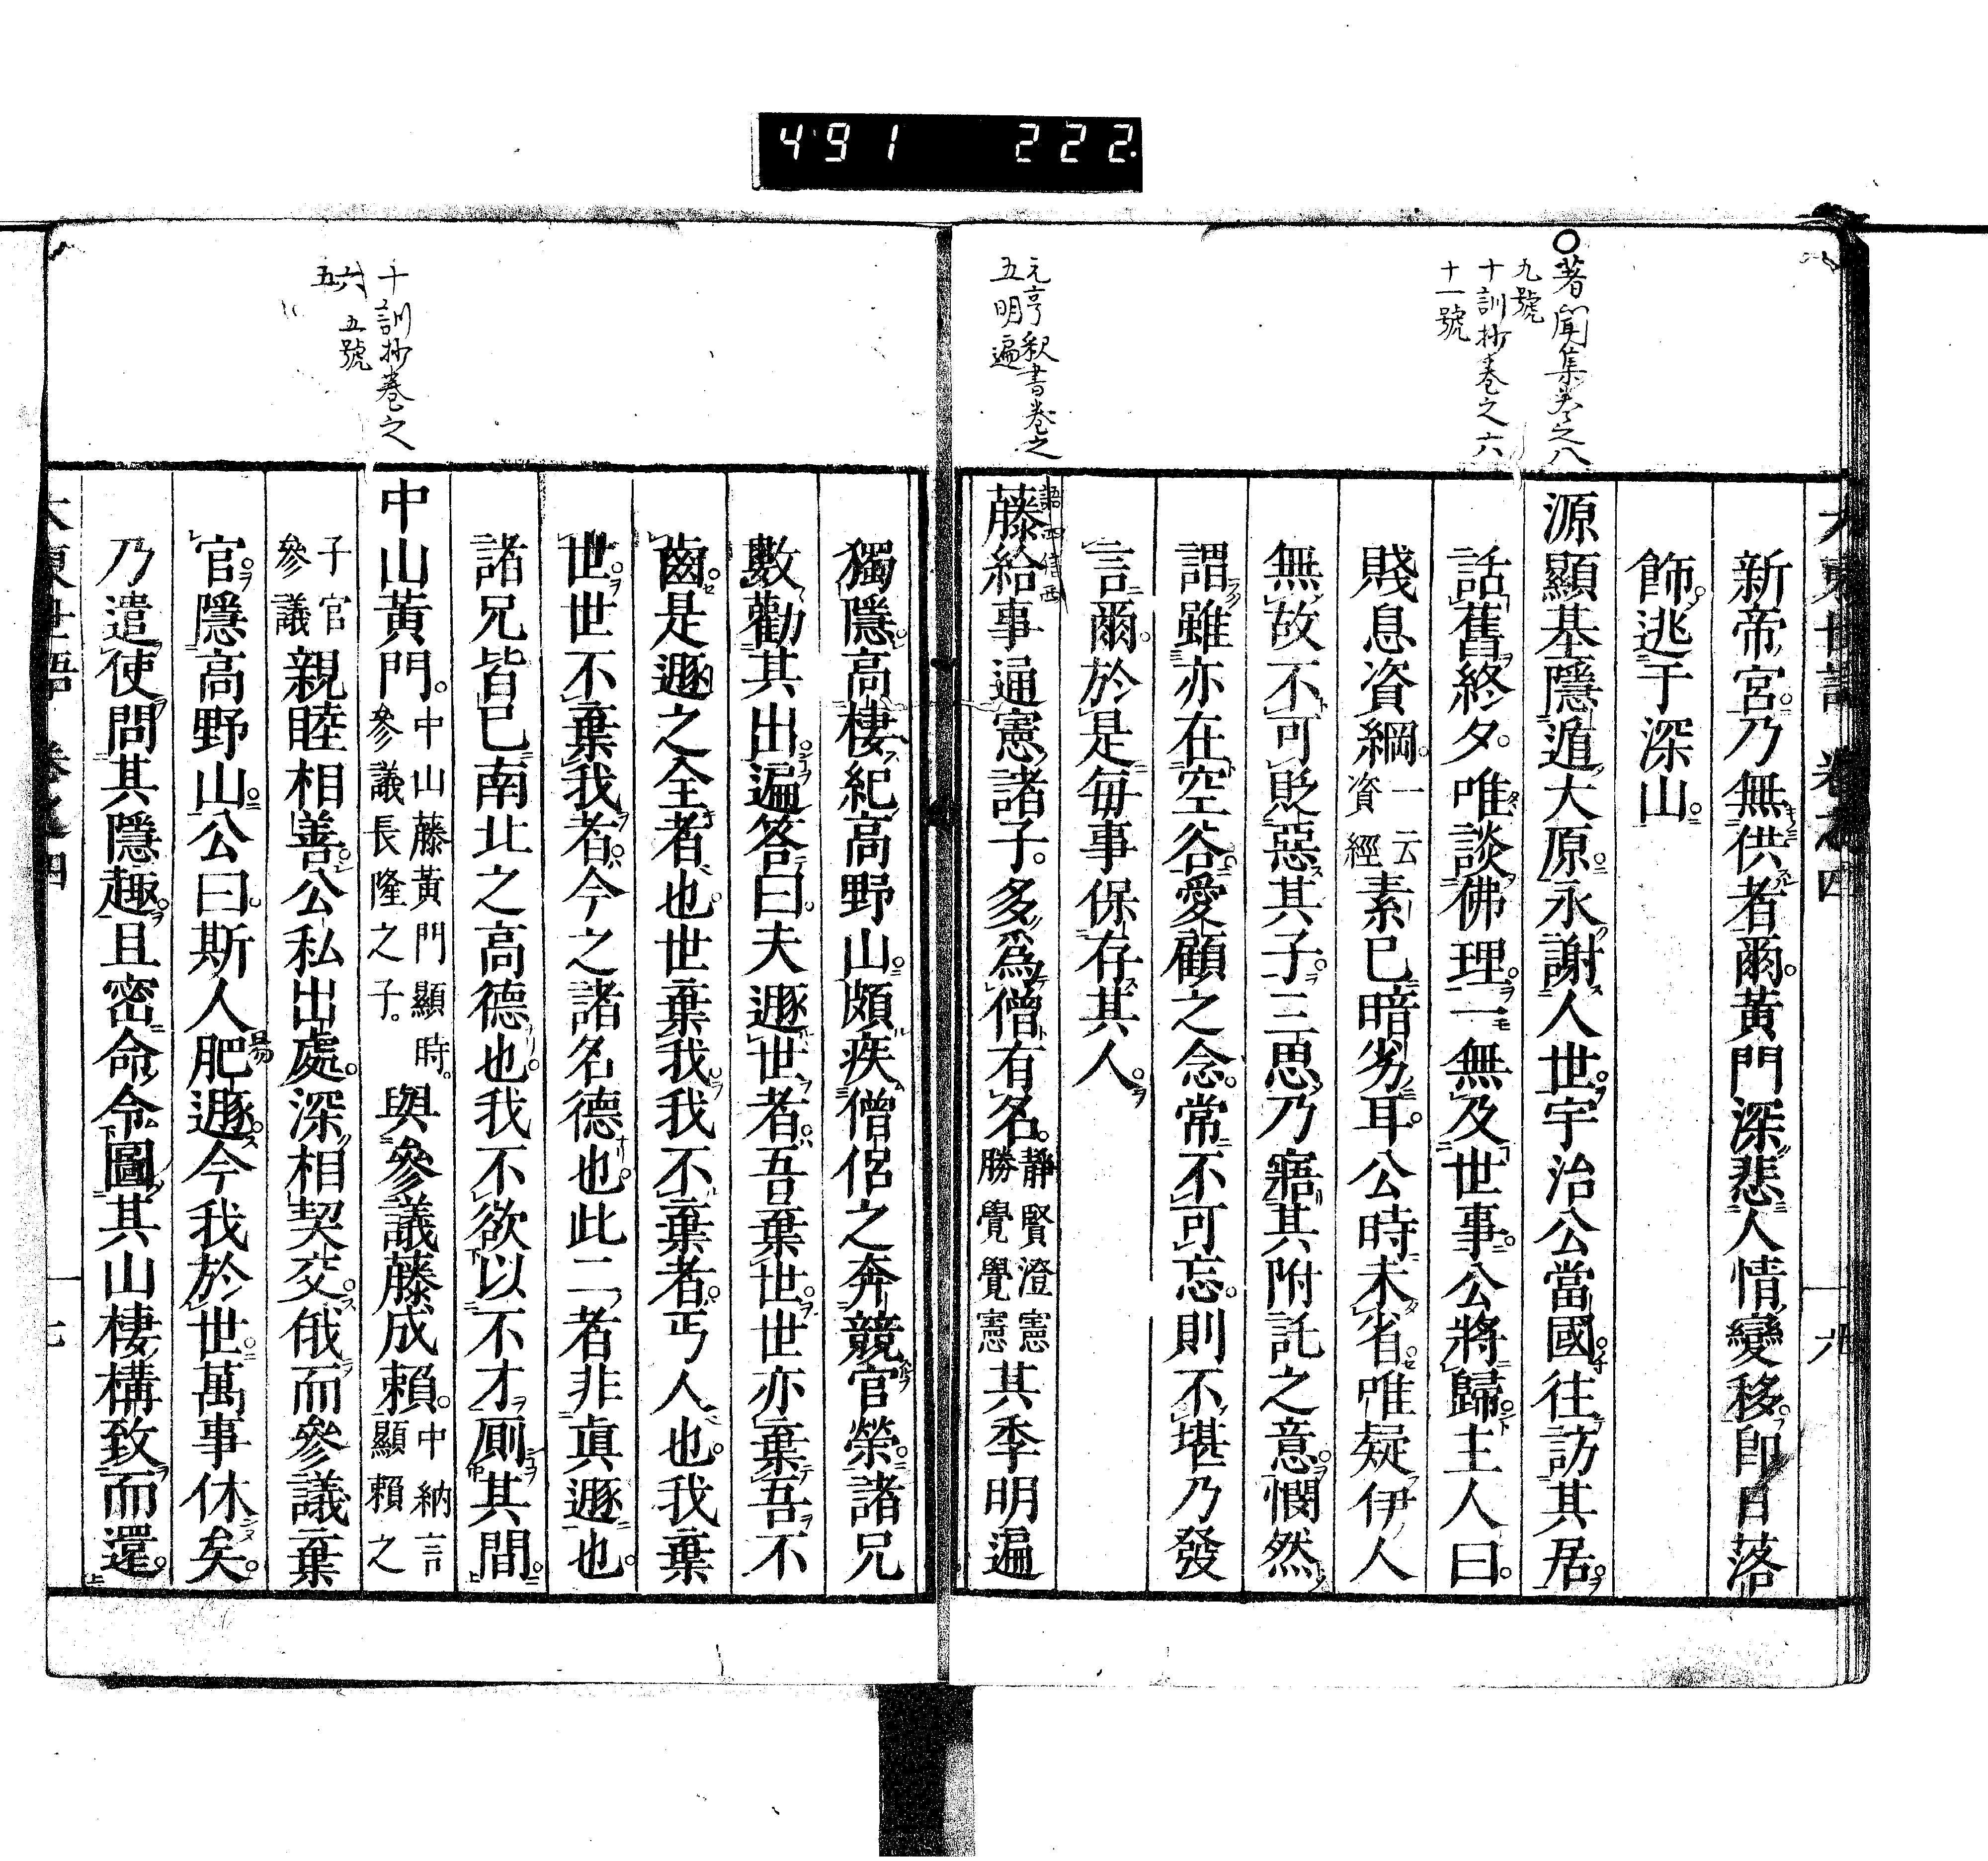 491 222
○著聞集巻之八
九號
十訓抄巻之六
十一號
元亨釈書巻之
五明遍
十訓抄巻之
六
五
五號
新帝宮乃無供者爾黃門深悲人情變移即日落
飾逃于深山
源顯基隱遁大原永謝人世宇治公當國往訪其居
話舊終夕唯談佛理一無及世事公將歸主人曰
賤息資綱一云資經素已暗劣耳公時未省唯疑伊人
無故不可貶惡其子三思乃寤其附託之意憫然
謂雖亦在空谷愛顧之念常不可忘則不堪乃發
言爾於是每事保存其人
藤給事通憲諸子多爲僧有名靜賢澄憲勝覺覺憲其季明遍
獨隱高棲紀高野山頗疾僧侶之奔競官榮諸兄
數勸其出遍答曰夫遯世者吾棄世世亦棄吾不
齒是遯之全者也世棄我我不棄者丐人也我棄
世世不棄我者今之諸名德也此二者非眞遯也
諸兄皆已南北之高德也我不欲以不才厠其間
中山黃門中山藤黃門顯時參議長隆之子與參議藤成賴中納言顯賴之
子官參議親睦相善公私出處深相契交俄而參議棄
官隱高野山公曰斯人肥遯今我於世萬事休矣
乃遣使問其隱趣且密命令圖其山棲構致而還
大東世語 卷之四